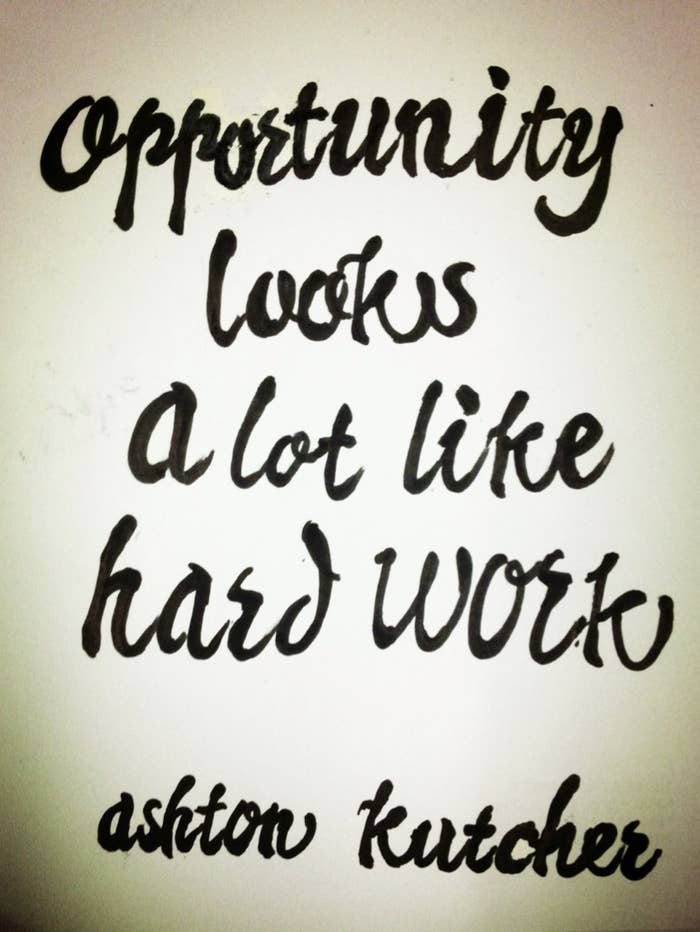 Opportunity
looks
a lot like
hard work
ashton kutcher